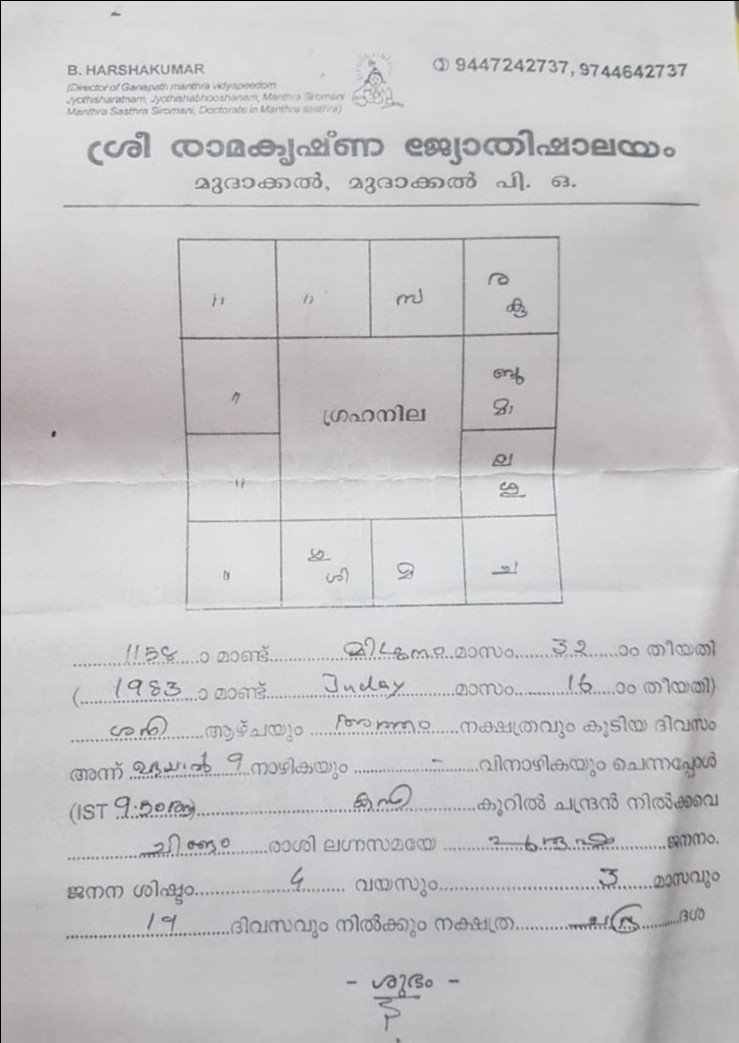 B. HARSHAKUMAR
① 9447242737, 9744642737
(Director of Ganapath manthra vidyapeedom
Jyothisharatnam, Jyothishabhooshanam, Manthra Siromani
Manthra Sasthra Siromani, Doctorate in Manthra sasthra)
ശ്രീ രാമകൃഷ്ണ ജ്യോതിഷാലയം
മുദാക്കൽ, മുദാക്കൽ പി. ഒ.
" " സ ര
കു
" ബു
മാ
ഗ്രഹനില
" ല
ശു
" ശി ച
1158 ാ മാണ്ട് മിഥുനം മാസം 32 ാം തീയതി
( 1983 ാ മാണ്ട് മാസം 16 ാം തീയതി)
ശനി ആഴ്ചയും അത്തം നക്ഷത്രവും കൂടിയ ദിവസം
അന്ന് ഉദയാൽ 9 നാഴികയും - വിനാഴികയും ചെന്നപ്പോൾ
(IST കന്നി കൂറിൽ ചന്ദ്രൻ നിൽക്കവെ
ചിങ്ങം രാശി ലഗ്നസമയേ ജനനം.
ജനന ശിഷ്ടം 4 വയസും 3 മാസവും
19 ദിവസവും നിൽക്കും നക്ഷത്ര ചന്ദ്ര ദശ
- ശുഭം -